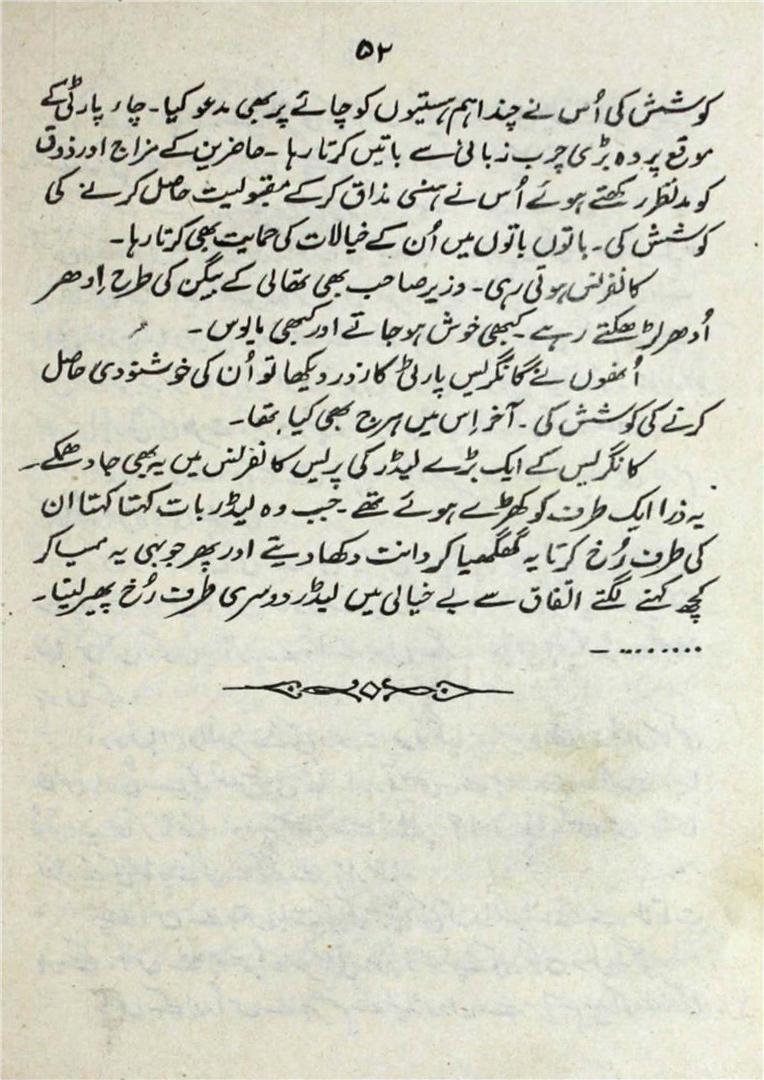 ۵۲
کوشش کی اُس نے چند اہم ہستیوں کو چائے پر بھی مدعو کیا۔ چاء پارٹی کے
موقع پر وہ بڑی چرب زبانی سے باتیں کرتا رہا۔ حاضرین کے مزاج اور ذوق
کو مدنظر رکھتے ہوئے اُس نے ہنسی مذاق کرکے مقبولیت حاصل کرنے کی
کوشش کی۔ باتوں باتوں میں اُن کے خیالات کی حمایت بھی کرتا رہا۔
کانفرنس ہوتی رہی۔ وزیر صاحب بھی تھالی کے بیگن کی طرح اِدھر
اُدھر لڑھکتے رہے۔ کبھی خوش ہوجاتے اور کبھی مایوس۔
اُنھوں نے کانگریس پارٹی کا زور دیکھا تو اُن کی خوشنودی حاصل
کرنے کی کوشش کی۔ آخر اِس میں ہرج بھی کیا تھا۔
کانگریس کے ایک بڑے لیڈر کی پریس کانفرنس میں یہ بھی جا دھمکے۔
یہ ذرا ایک طرف کو کھڑے ہوئے تھے۔ جب وہ لیڈر بات کہتا کہتا ان
کی طرف رُخ کرتا یہ گھگھیا کر دانت دکھا دیتے اور پھر جونہی یہ ممیا کر
کچھ کہنے لگتے اتفاق سے بے خیالی میں لیڈر دوسری طرف رُخ پھیر لیتا۔
........ ۔